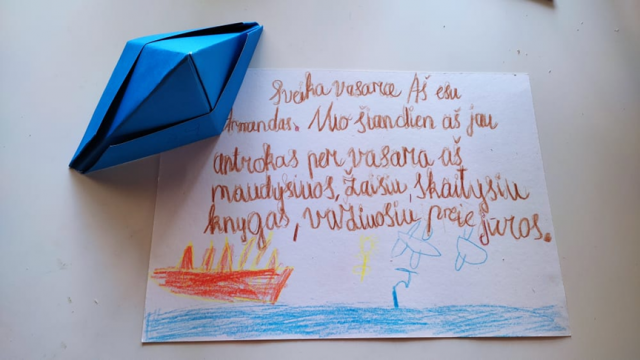 Sveika vasara Aš esu
Armandas. Nuo šiandien aš jau
antrokas per vasara aš
maudysiuos, žaisiu, skaitysiu
knygas, važiuosiu preie jūros.